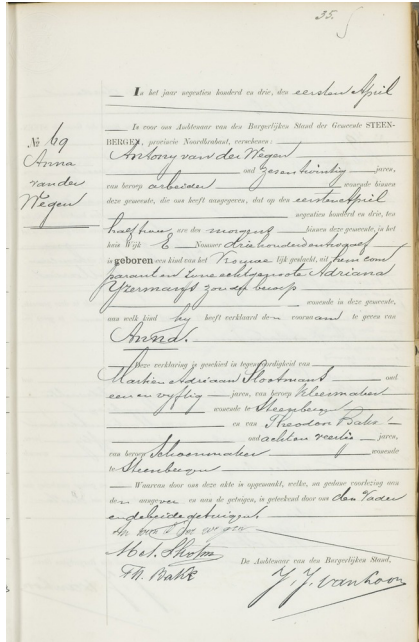 35.
In het jaar negentien honderd en drie, den eersten April
Is voor ons Ambtenaar van den Burgerlijken Stand der Gemeente STEEN-
BERGEN, provincie Noordbrabant, verschenen:
No 69
Anna
van der
Wegen
Antony van der Wegen
oud zesentwintig jaren,
van beroep arbeider wonende binnen
deze gemeente, die ons heeft aangegeven, dat op den eersten April
negentien honderd en drie, ten
half twee ure des morgens binnen deze gemeente, in het
huis Wijk E Nummer driehonderd
is geboren een kind van het Vrouwelijk geslacht, uit hem com
parant en zijne echtgenoote Adriana
Yzermans zonder beroep
wonende in deze gemeente,
aan welk kind hij heeft verklaard den voornaam te geven van
Anna.
Deze verklaring is geschied in tegenwoordigheid van
Marten Adriaan Slootmans oud
een en vijftig jaren, van beroep kleermaker
wonende te Steenbergen
en van Theodor Bakx
oud achtenveertig jaren,
van beroep Schoenmaker wonende
te Steenbergen
Waarvan door ons deze akte is opgemaakt, welke, na gedane voorlezing aan
den aangever en aan de getuigen, is geteekend door ons den Vader
en de beide getuigen
De Ambtenaar van den Burgerlijken Stand,
Th. Bakx
J. J. van Loon